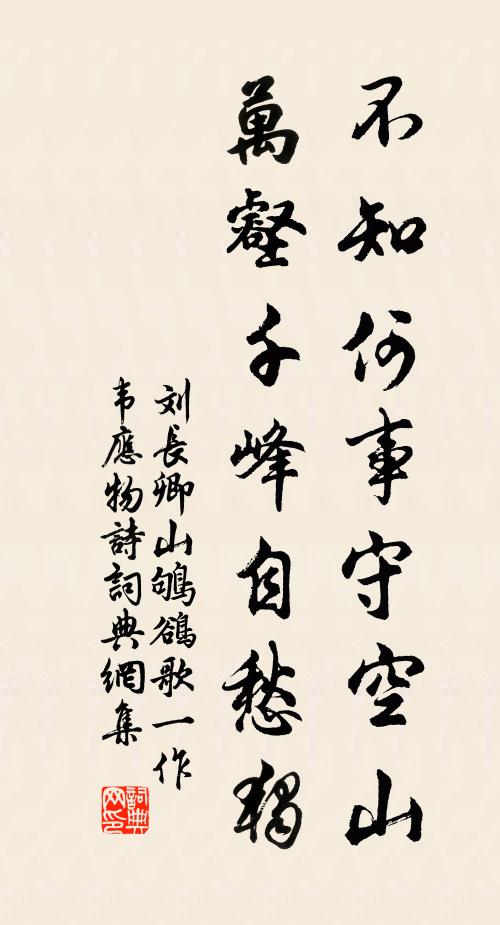 不知何事守空山
萬壑千峰自愁獨
刘長卿山鸲鵒歌一作
韦應物詩詞典網集
詞典網印